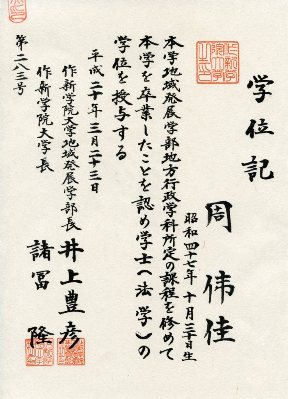 学位記
周 伟佳
昭和四十七年十月三十日生
本学地域発展学部地方行政学科所定の課程を修めて
本学を卒業したことを認め学士(法学)の
学位を授与する
平成二十年三月二十三日
作新学院大学地域発展学部長 井上豊彦
作新学院大学長 諸冨 隆
第二八三号